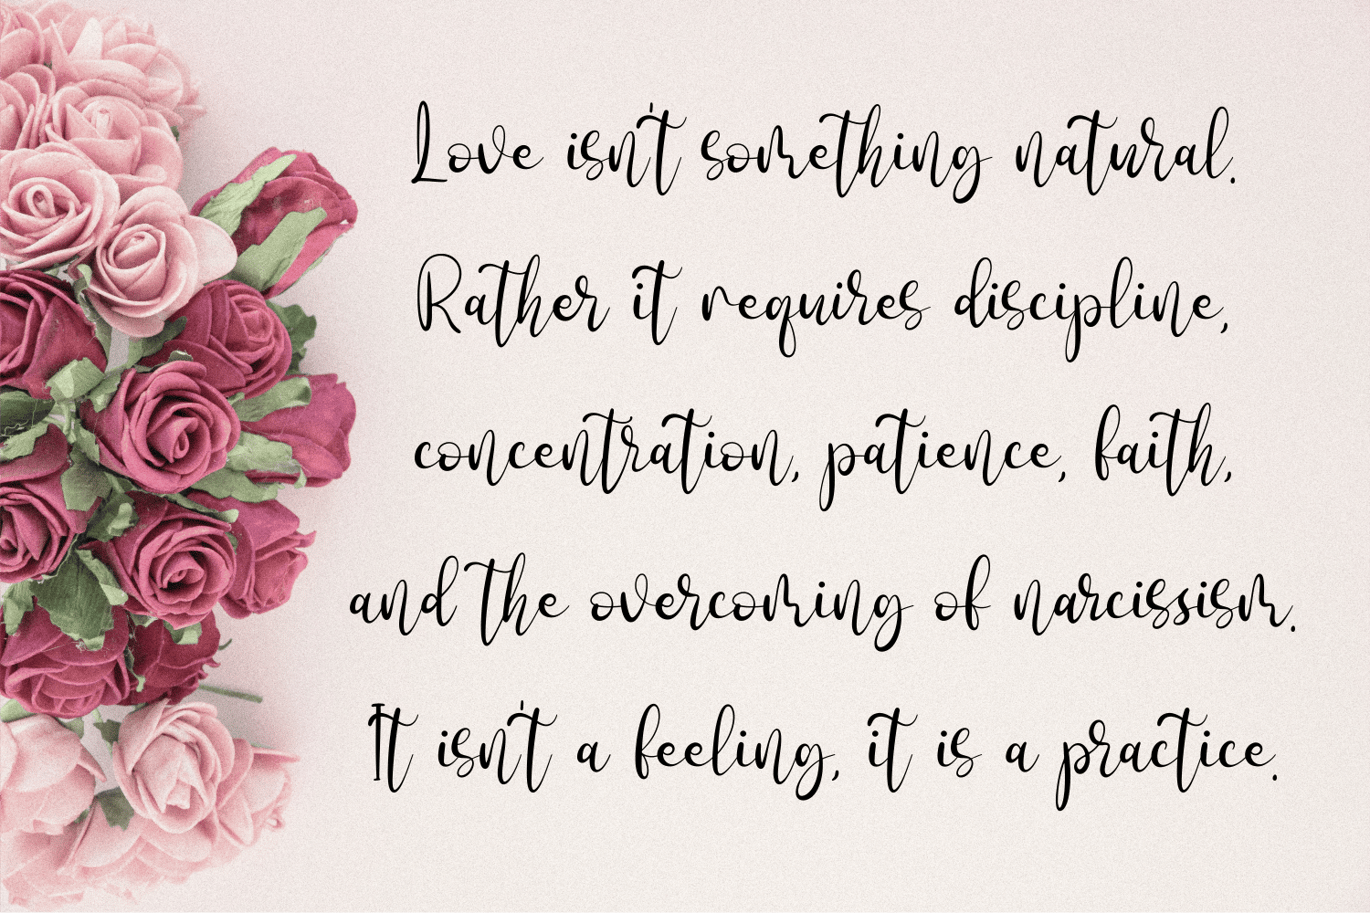 Love isn't something natural.
Rather it requires discipline,
concentration, patience, faith,
and the overcoming of narcissism.
It isn't a feeling, it is a practice.